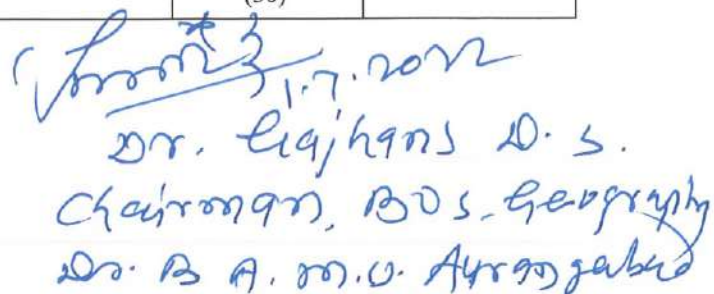 (50)
1.7.2022
Dr. Gajhans D. S.
Chairman, BOS, Geography
Dr. B A. M.U. Aurangabad